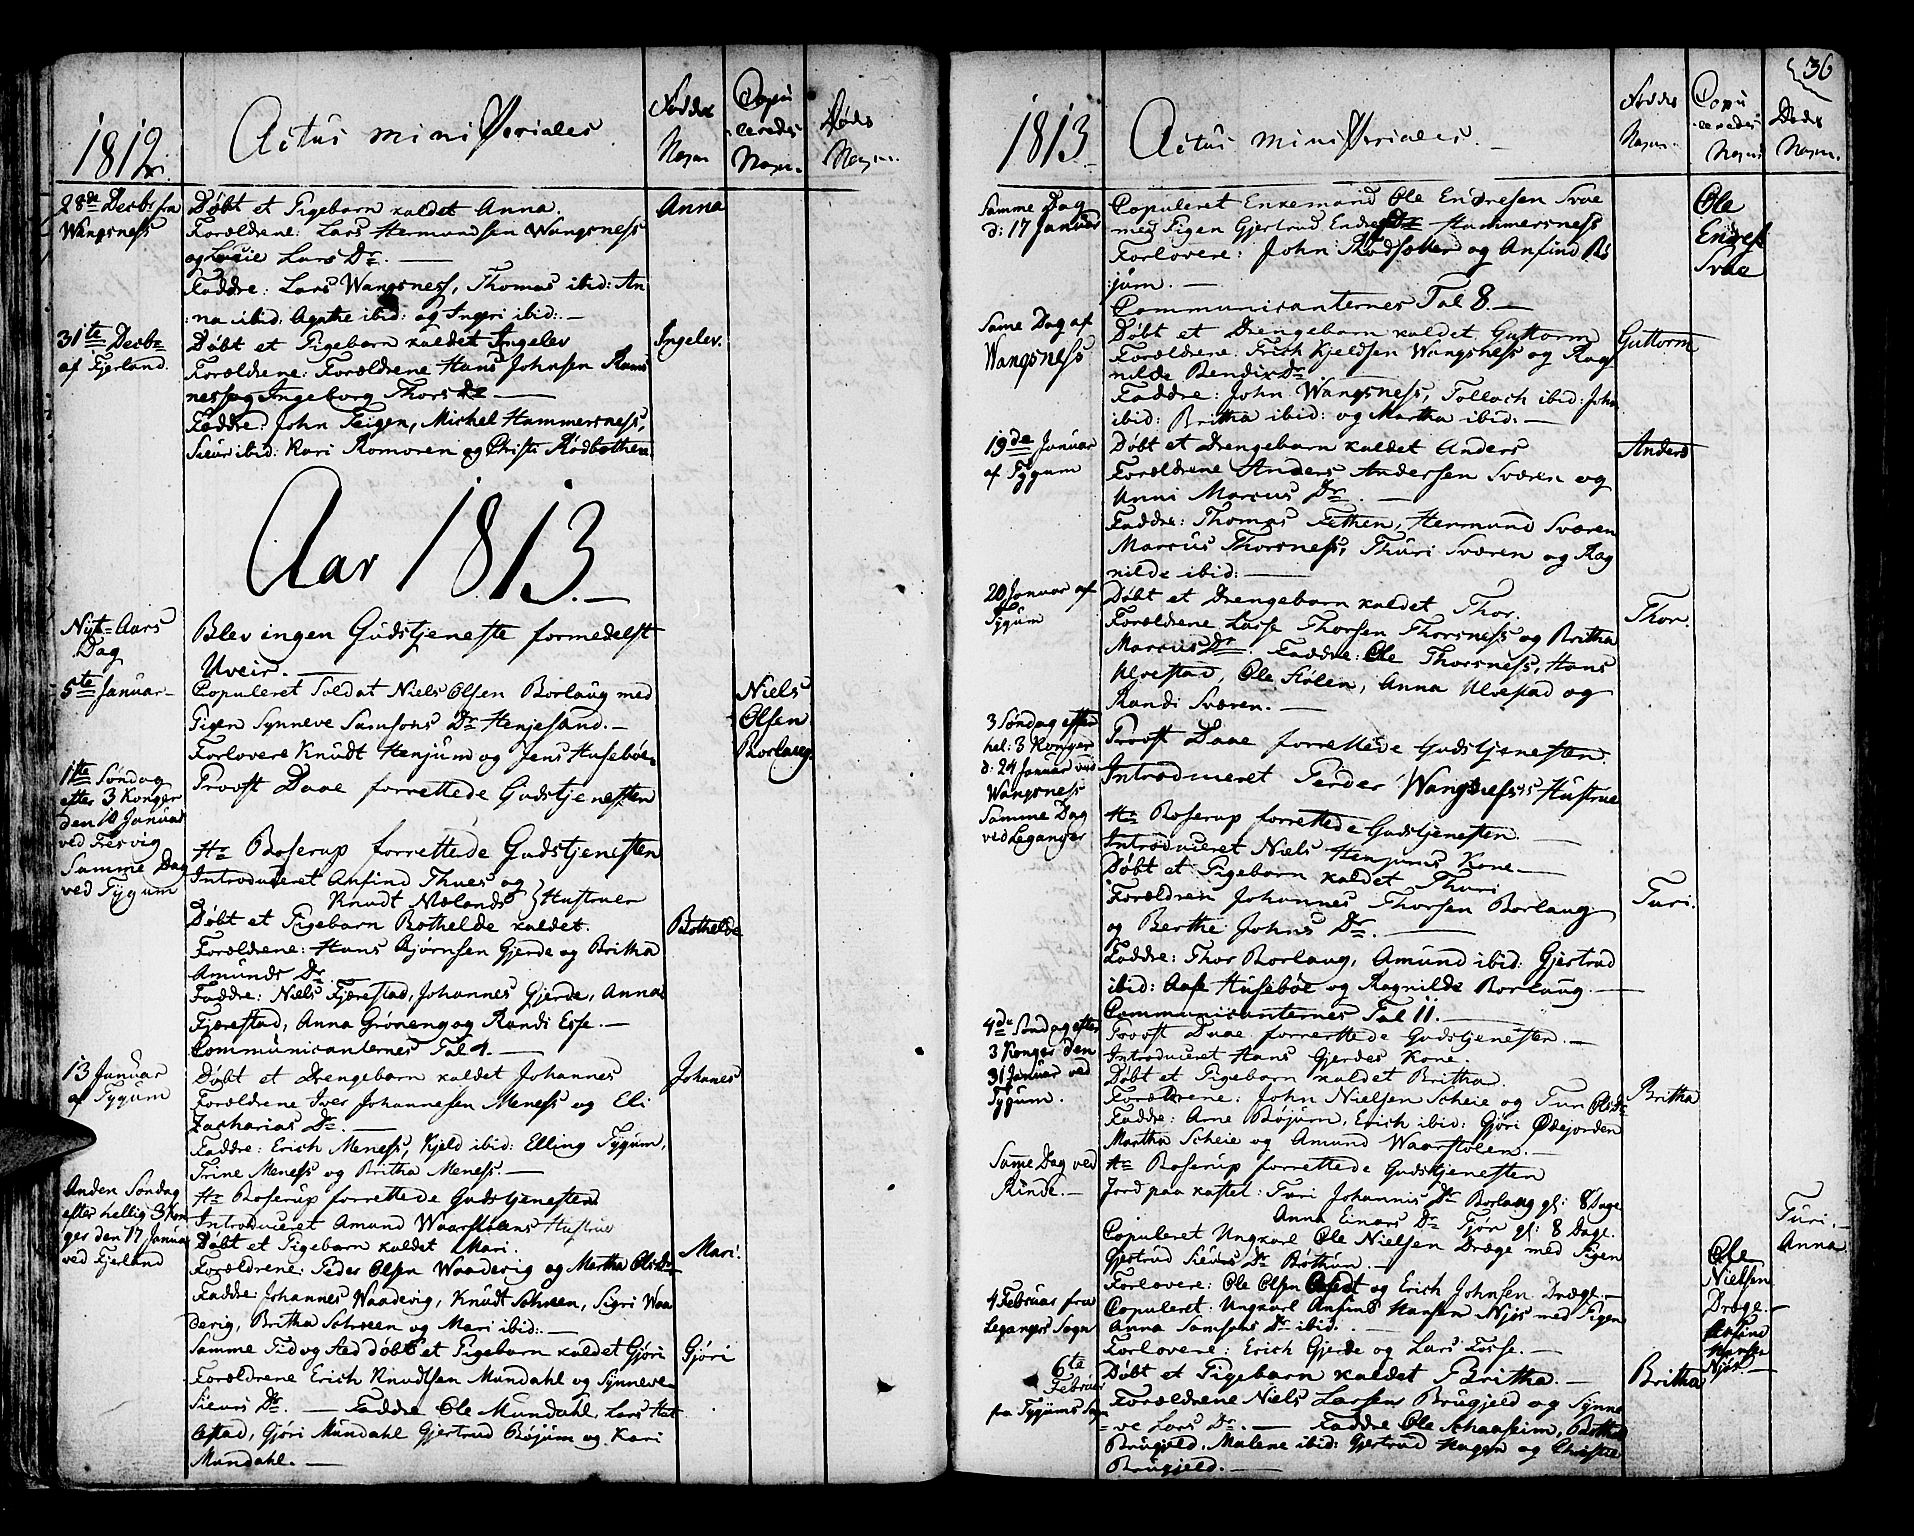 1812.
Actus ministeriales
Føddes Nagn
Copulceredes Nagn.
Dødes Nagn.
28de Decbr fra
Wangsness
Døbt et Pigebarn kaldet Anna.
Anna
Forældrene: Lars Hermundsen Wangsness
og Lucie Lars Dr. —
Faddre: Lars Wangsness, Thomas ibid: An
na ibid: Agathe ibid: og Ingeri ibid: —
31te Decbr
af Fjerland.
Døbt et Pigebarn kaldet Ingelev
Ingelev.
Forældrene: Forældrene Hans Johnsen Rums
ness og Ingeborg Thors Dr —
Faddre: John Teigen, Michel Hammersness,
Siur ibid: Kari Romoren og Christi Rødbotten
Aar 1813. —
Nyt-Aars
Dag
Blev ingen Gudstjeneste formedelst
Uveir. —
5te Januar —
Copuleret Soldat Niels Olsen Borlaug med
Pigen Synneve Samsons Dr Henjesand. —
Forlovere Knudt Henjum og Jens Husebøe.
Niels
Olsen
Borlaug
1te Søndag
efter 3 Konger
den 10 Januar
ved Fresvig
Provst Daae forrettede Gudstjenesten
Samme Dag
ved Tygum
Hr Boserup forrettede Gudstjenesten
Introduceret Anfind Thues og
Knudt Mælands } Hustruer
Døbt et Pigebarn Bothelde kaldet.
Bothelde
Forældrene: Hans Bjørnsen Gjerde og Britha
Amunds Dr.
Faddre: Niels Fjærestad, Johannes Gjerde, Anna
Fjærestad, Anna Grøneng og Randi Esse. —
Communicanternes Tal 4. —
13 Januar
af Tygum
Døbt et Drengebarn kaldet Johannes
Johanes
Forældrene Iver Johannesen Meness og Eli
Zacharias Dr. —
Faddre: Erich Meness, Kjeld ibid: Elling Tygum,
Trine Meness og Britha Meness. —
Anden Søndag
efter hellig 3 Kon
ger den 17 Januar
ved Fjerland
Hr Boserup forrettede Gudstjenesten
Introduceret Amund Waarstølens Hustrue
Døbt et Pigebarn kaldet Mari.
Mari.
Forældrene: Peder Olsen Waadevig og Martha Ols Dr
Faddre: Johannes Waadevig, Knudt Scheen, Sigri Waa
devig, Britha Scheen og Mari ibid: —
Samme Tid og Sted døbt et Pigebarn kaldet Gjøri
Gjøri
Forældrene Erich Knudtsen Mundahl og Synneve
Siurs Dr. — Faddre Ole Mundahl, Lars Hat
lestad, Gjøri Mundahl Gjertrud Bøjum og Kari
Mundahl. —
36
1813.
Actus ministeriales. —
Føddes Nagn.
Copuleredes Nagn
Dødes Nagn.
Samme Dag
d: 17 Januar
Copuleret Enkemand Ole Endresen Svae
med Pigen Gjertrud Endres Dr Hammersness
Forlovere: John Rødsetter og Anfind Bø
jum. —
Ole
Endres
Svae
Communicanternes Tal 8 —
Same Dag af
Wangsness
Døbt et Drengebarn kaldet Guttorm
Guttorm
Forældrene: Erich Kjeldsen Wangsness og Rag
nilde Bendix Dr —
Faddre: John Wangsness, Tollach ibid: John
ibid: Britha ibid: og Martha ibid: —
19de Januar
af Tygum
Døbt et Drengebarn kaldet Anders
Anders
Forældrene Anders Andersen Sværen og
Anni Marcus Dr. —
Faddre: Thomas Fetten, Hermund Sværen
Marcus Thorsness, Thuri Sværen og Rag
nilde ibid: —
20 Januar af
Tygum
Døbt et Drengebarn kaldet Thor.
Thor.
Forældrene Lasse Thorsen Thorsness og Britha
Marcus Dr. Faddre: Ole Thorsness, Hans
Ulvestad, Ole Stølen, Anna Ulvestad og
Randi Sværen. —
3 Søndag efter
hel: 3 Konger
d: 24 Januar ved
Wangsness
Provst Daae forrettede Gudstjenesten.
Introduceret Peder Wangsness's Hustrue
Samme Dag
ved Leganger
Hr Boserup forrettede Gudstjenesten. —
Introduceret Niels Henjums Kone —
Døbt et Pigebarn kaldet Thuri
Turi.
Forældren Johannes Thorsen Borlaug
og Berthe Johns Dr. —
Faddre: Thor Borlaug, Amund ibid: Gjertrud
ibid: Aase Husebøe og Ragnilde Borlaug. —
Communicanternes Tal 11. —
4de Søndag efter
3 Konger den
31 Januar ved
Tygum.
Provst Daae forrettede Gudstjenesten. —
Introduceret Hans Gjerdes Kone.
Døbt et Pigebarn kaldet Britha.
Britha
Forældrene: John Nielsen Scheie og Turi Ols Dr
Faddre: Arne Bøjum, Erich ibid: Gjøri Ødejorden
Martha Scheie og Amund Waarstølen. —
Samme Dag ved
Rinde. —
Hr Boserup forrettede Gudstjenesten
Jord paa kastet: Turi Johannis Dr Borlaug gl: 8 Dage
Anna Einars Dr Fjøn gl: 8 Dage.
Turi. —
Anna
Copuleret Ungkarl Ole Nielsen Dræge med Pigen
Gjertrud Siurs Dr Bøthun. —
Forlovere: Ole Olsen og Erich Johnsen Dræge. —
Ole
Nielsen
Dræge. —
4 Februar fra
Leganger Sogn
Copuleret: Ungkarl Anfind Hansen Njøs med Pigen
Anna Samsons Dr ibid: —
Forlovere: Erich Gjerde og Lars Fosse. —
Anfind
Hansen
Njøs —
6te
Februar
fra Tygums Sogn
Døbt et Pigebarn kaldet Britha. —
Britha
Forældrene Niels Larsen Brugjeld og Synne
ve Lars Dr. — Faddre Ole Schaaseim, Bothel
Brugjeld, Malene ibid: Gjertrud Haugen og Christie
Brugjeld. —